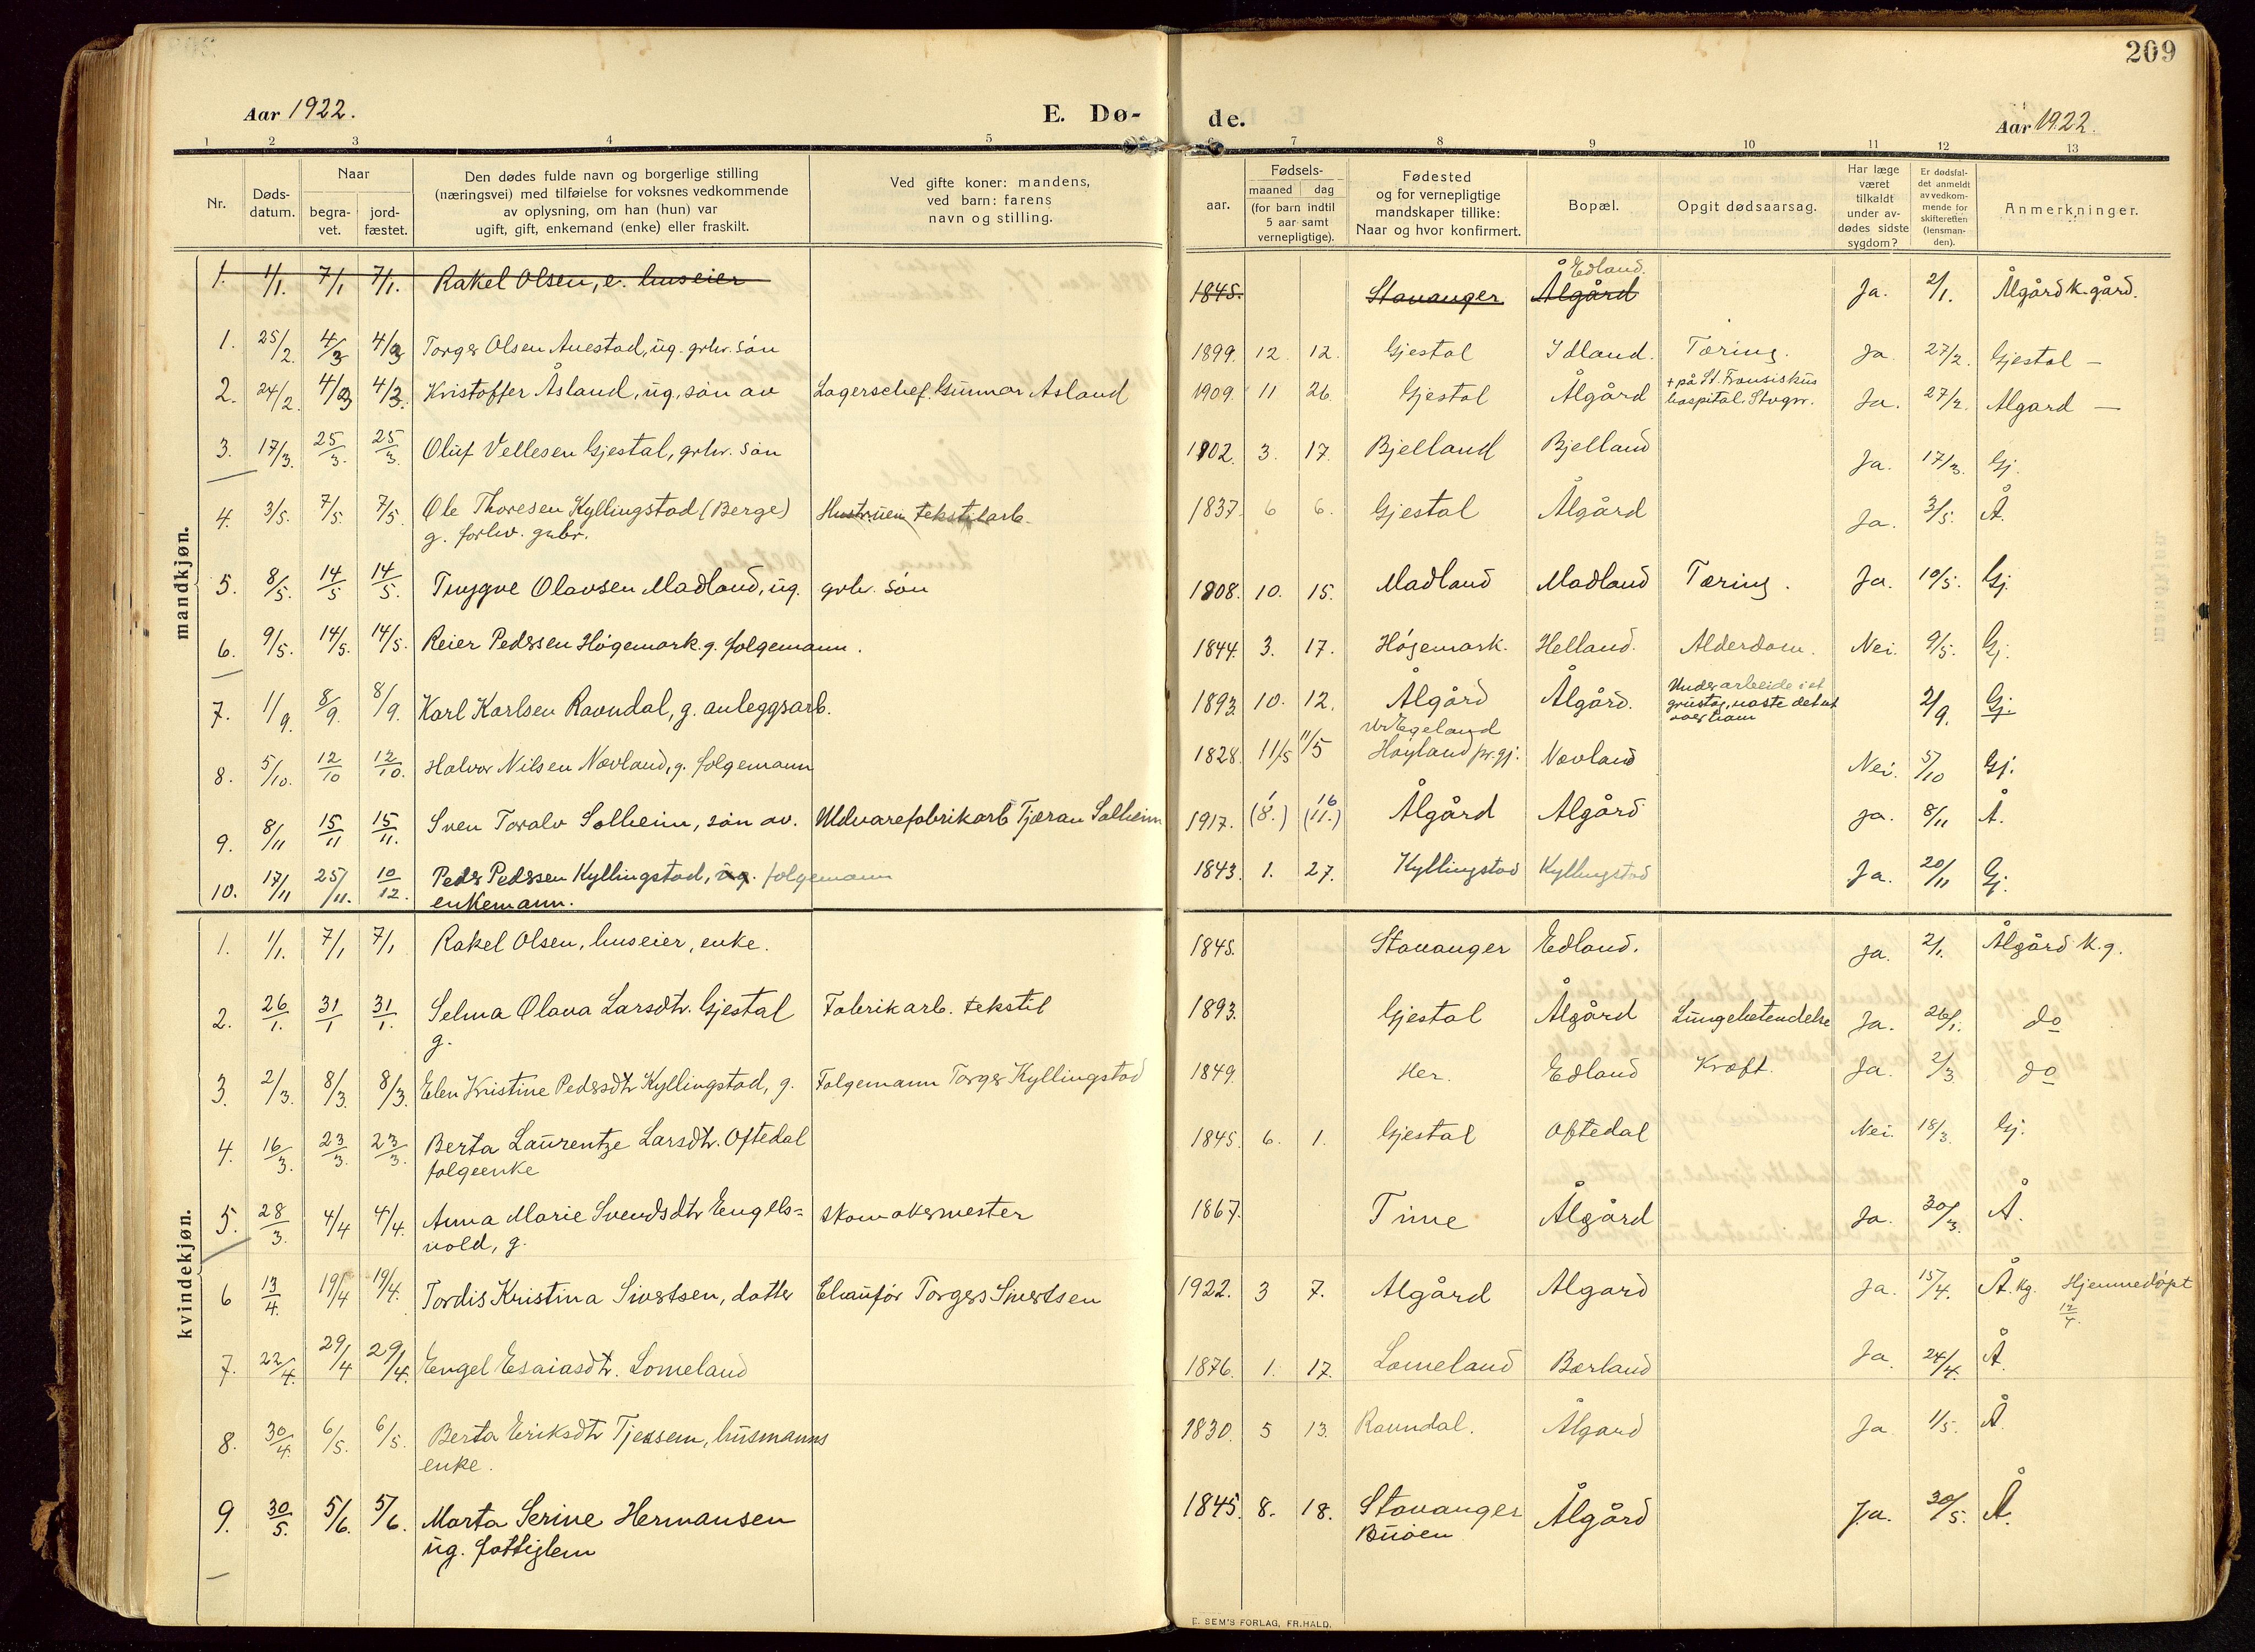 209
Aar 1922. E. Dø- de. Aar 1922.
1 2 3 4 5 6 7 8 9 10 11 12 13
Nr. Døds-datum. Naar begra-vet. jord-fæstet. Den dødes fulde navn og borgerlige stilling (næringsvei) med tilføielse for voksnes vedkommende av oplysning, om han (hun) var ugift, gift, enkemand (enke) eller fraskilt. Ved gifte koner: mandens, ved barn: farens navn og stilling. Fødsels- aar. maaned dag (for barn indtil 5 aar samt vernepligtige). Fødested og for vernepligtige mandskaper tillike: Naar og hvor konfirmert. Bopæl. Opgit dødsaarsag. Har læge været tilkaldt under av-dødes sidste sygdom? Er dødsfal-det anmeldt av vedkom-mende for skifteretten (lensman-den). Anmerkninger.
mandkjøn.
1. 1/1. 7/1 7/1. Rakel Olsen, e. huseier 1845. Stavanger Ålgård Edland. Ja. 2/1. Ålgård k.gård.
1. 25/2. 4/3 4/3 Torger Olsen Auestad, ug. grbr. søn 1899. 12. 12. Gjestal Idland. Tæring. Ja. 27/2. Gjestal —
2. 24/2. 4/3 4/3. Kristoffer Åsland, ug. søn av Lagerschef Gunnar Åsland 1909. 11 26. Gjestal Ålgård + på St. Fransiskus hospital. Stvgr. Ja. 27/2. Ålgard —
3. 17/3. 25/3. 25/3. Oluf Vellesen Gjestal, grbr. søn 1902. 3. 17. Bjelland Bjelland Ja. 17/3. Gj.
4. 3/5. 7/5. 7/5. Ole Thoresen Kyllingstad (Berge) g. forhv. gabr. Hustruen tekstilarb. 1837. 6 6. Gjestal Ålgård Ja. 3/5. Å.
5. 8/5. 14/5 14/5. Trygve Olavsen Madland, ug. grbr. søn 1908. 10. 15. Madland Madland Tæring. Ja. 10/5. Gj.
6. 9/5. 14/5. 14/5. Reier Pedersen Høgemark. g. følgemann. 1844. 3. 17. Høgemark. Helland. Alderdom. Nei. 9/5. Gj.
7. 1/9. 8/9. 8/9. Karl Karlsen Ravndal, g. anleggsarb. 1893. 10. 12. Ålgård Ålgård. Under arbeide i et grustag, raste det ut over ham 2/9. Gj.
8. 5/10. 12/10 12/10. Halvor Nilsen Nævland, g. følgemann 1828. 11/5 11/5 Egeland Høyland pr.gj. Nævland Nei. 5/10 Gj.
9. 8/11 15/11 15/11. Sven Toralv Solheim, søn av. Uldvarefabrikarb Tjæran Solheim 1917. 1 (8.) 16 (11.) Ålgård Ålgård Ja. 8/11 Å.
10. 17/11 25/11. 10/12. Peder Pedersen Kyllingstad, ug. følgemann enkemann. 1843. 1. 27. Kyllingstad Kyllingstad Ja. 20/11 Gj.
kvindekjøn.
1. 1/1. 7/1 7/1 Rakel Olsen, huseier, enke. 1845. Stavanger Edland. Ja. 2/1. Ålgård k.g.
2. 26/1. 31/1 31/1. Selma Olava Larsdtr. Gjestal g. Fabrikarb. tekstil 1893. Gjestal Ålgård Lungebetendelse Ja. 26/1. do
3. 2/3. 8/3. 8/3. Elen Kristine Pedersdtr Kyllingstad, g. Følgemann Torger Kyllingstad 1849. Her. Edland Kræft. Ja. 2/3. do
4. 16/3. 23/3. 23/3. Berta Laurentze Larsdtr. Oftedal følgeenke 1845. 6. 1. Gjestal Oftedal Nei. 18/3. Gj.
5. 28/3. 4/4 4/4. Anna Marie Svendsdtr Engels=vold, g. Skomakermester 1867. Time Ålgård Ja. 30/3. Å.
6 13/4. 19/4 19/4. Tordis Kristina Sivertsen, datter Chaufør Torgers Sivertsen 1922. 3 7. Ålgård Ålgard Ja. 15/4. Å. kg. Hjemmedøpt 12/4.
7. 22/4. 29/4 29/4. Engel Esaiasdtr. Lomeland 1876. 1. 17. Lomeland Bærland Ja. 24/4. Å.
8. 30/4. 6/5. 6/5. Berta Eriksdtr Tjessem, husmanns enke. 1830. 5 13. Ravndal. Ålgard Ja 1/5. Å.
9. 30/5. 5/6. 5/6. Marta Serine Hermansen ug. fattiglem 1845. 8. 18. Stavanger Buøen Ålgård Ja. 30/5. Å.
E. SEM'S FORLAG, FR.HALD.